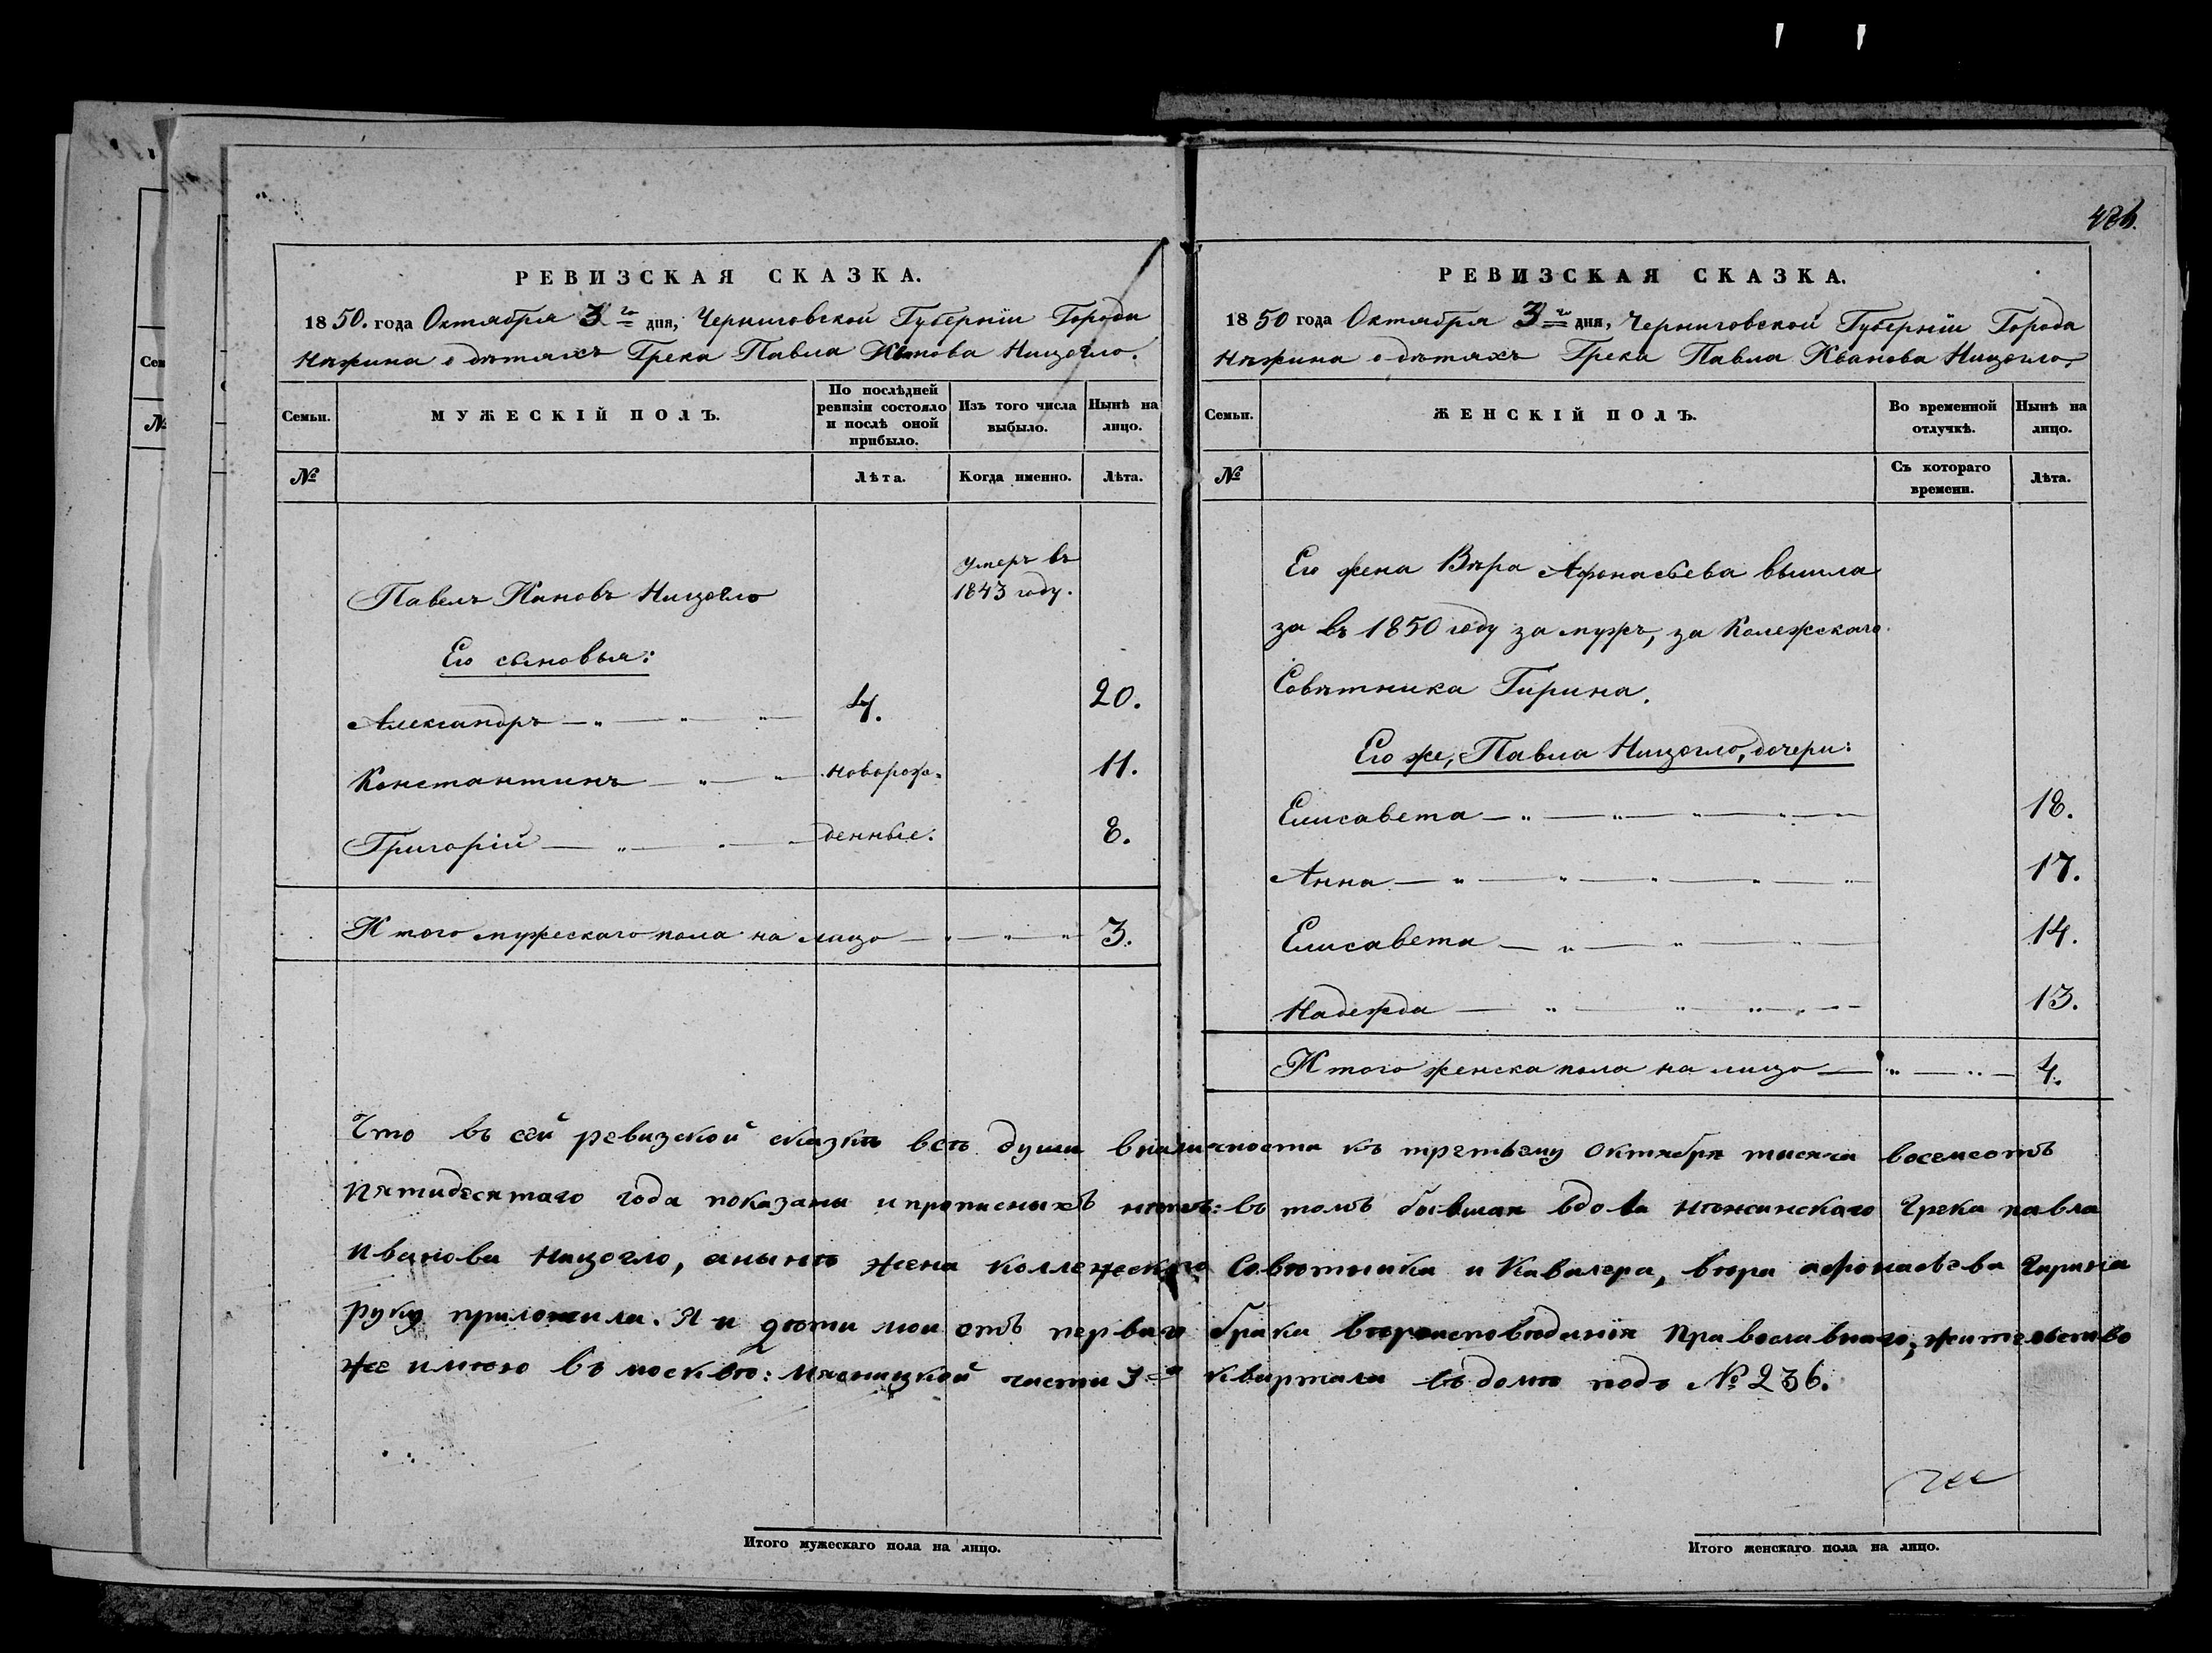 486.
РЕВИЗСКАЯ СКАЗКА.
1850. года Октября 3го дня, Черниговской Губерніи Города
Нѣжина о дѣтяхъ Грека Павла Иванова Ницогло.
Семьи.
МУЖЕСКІЙ ПОЛЪ.
По послѣдней ревизіи состояло и послѣ оной прибыло.
Изъ того числа выбыло.
Нынѣ на лицо.
№
Лѣта.
Когда именно.
Лѣта.
Павелъ Ивановъ Ницогло умеръ въ 1843 году.
Его сыновья:
Александръ — " — " — " 4. 20.
Константинъ — " — " новорож= 11.
Григорій — " — " — денные. 8.
Итого мужескаго пола на лицо — " — " — " 3.
РЕВИЗСКАЯ СКАЗКА.
1850 года Октября 3го дня, Черниговской Губерніи Города
Нѣжина о дѣтяхъ Грека Павла Иванова Ницогло,
Семьи.
ЖЕНСКІЙ ПОЛЪ.
Во временной отлучкѣ.
Нынѣ на лицо.
№
Съ котораго времени.
Лѣта.
Его жена Вѣра Афонасьева вышла
за въ 1850 году за мужъ, за Колежскаго
Совѣтника Гирина.
Его же, Павла Ницогло, дочери:
Елисавета — " — " — " — " — 18.
Анна — " — " — " — " — " 17.
Елисавета — " — " — " — 14.
Надежда — " — " — " — 13.
Итого женска пола на лицо — " — " — 4.
Что въ сей ревизской сказкѣ всѣ души в наличности къ третьему Октября тысяча восемсотъ
пятидесятаго года показаны и прописныхъ нѣтъ: въ томъ бывшая вдова нѣжинскаго Грека павла
иванова Ницогло, а нынѣ жена коллежскаго Совѣтника и Кавалера, вѣра афонасьева Гирина
руку приложила. Я и дѣти мои отъ перваго брака вѣроисповѣдинія православнаго, жительство
же имѣю въ москвѣ: Мясницкой части 3го квартала въ домѣ подъ № 236.
Итого мужескаго пола на лицо.
Итого женскаго пола на лицо.